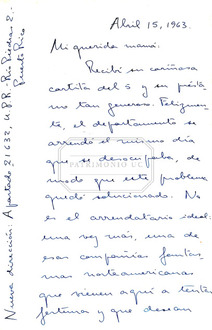 Abril 15, 1963.
Mi querida mamá:
Recibí su cariñosa
cartita del 5 y su présta-
mo tan generoso. Felizmen-
te, el departamento se
arrendó el mismo día
que se desocupaba, de
modo que este problema
quedó solucionado. No
es el arrendatario ideal:
una vez más, una de
esas compañías fantas-
mas norteamericanas
que vienen aquí a tentar
fortuna y que desean
Nueva dirección: Apartado 21632, U.P.R. - Río Piedras 2. -
Puerto Rico
PATRIMONIO UC